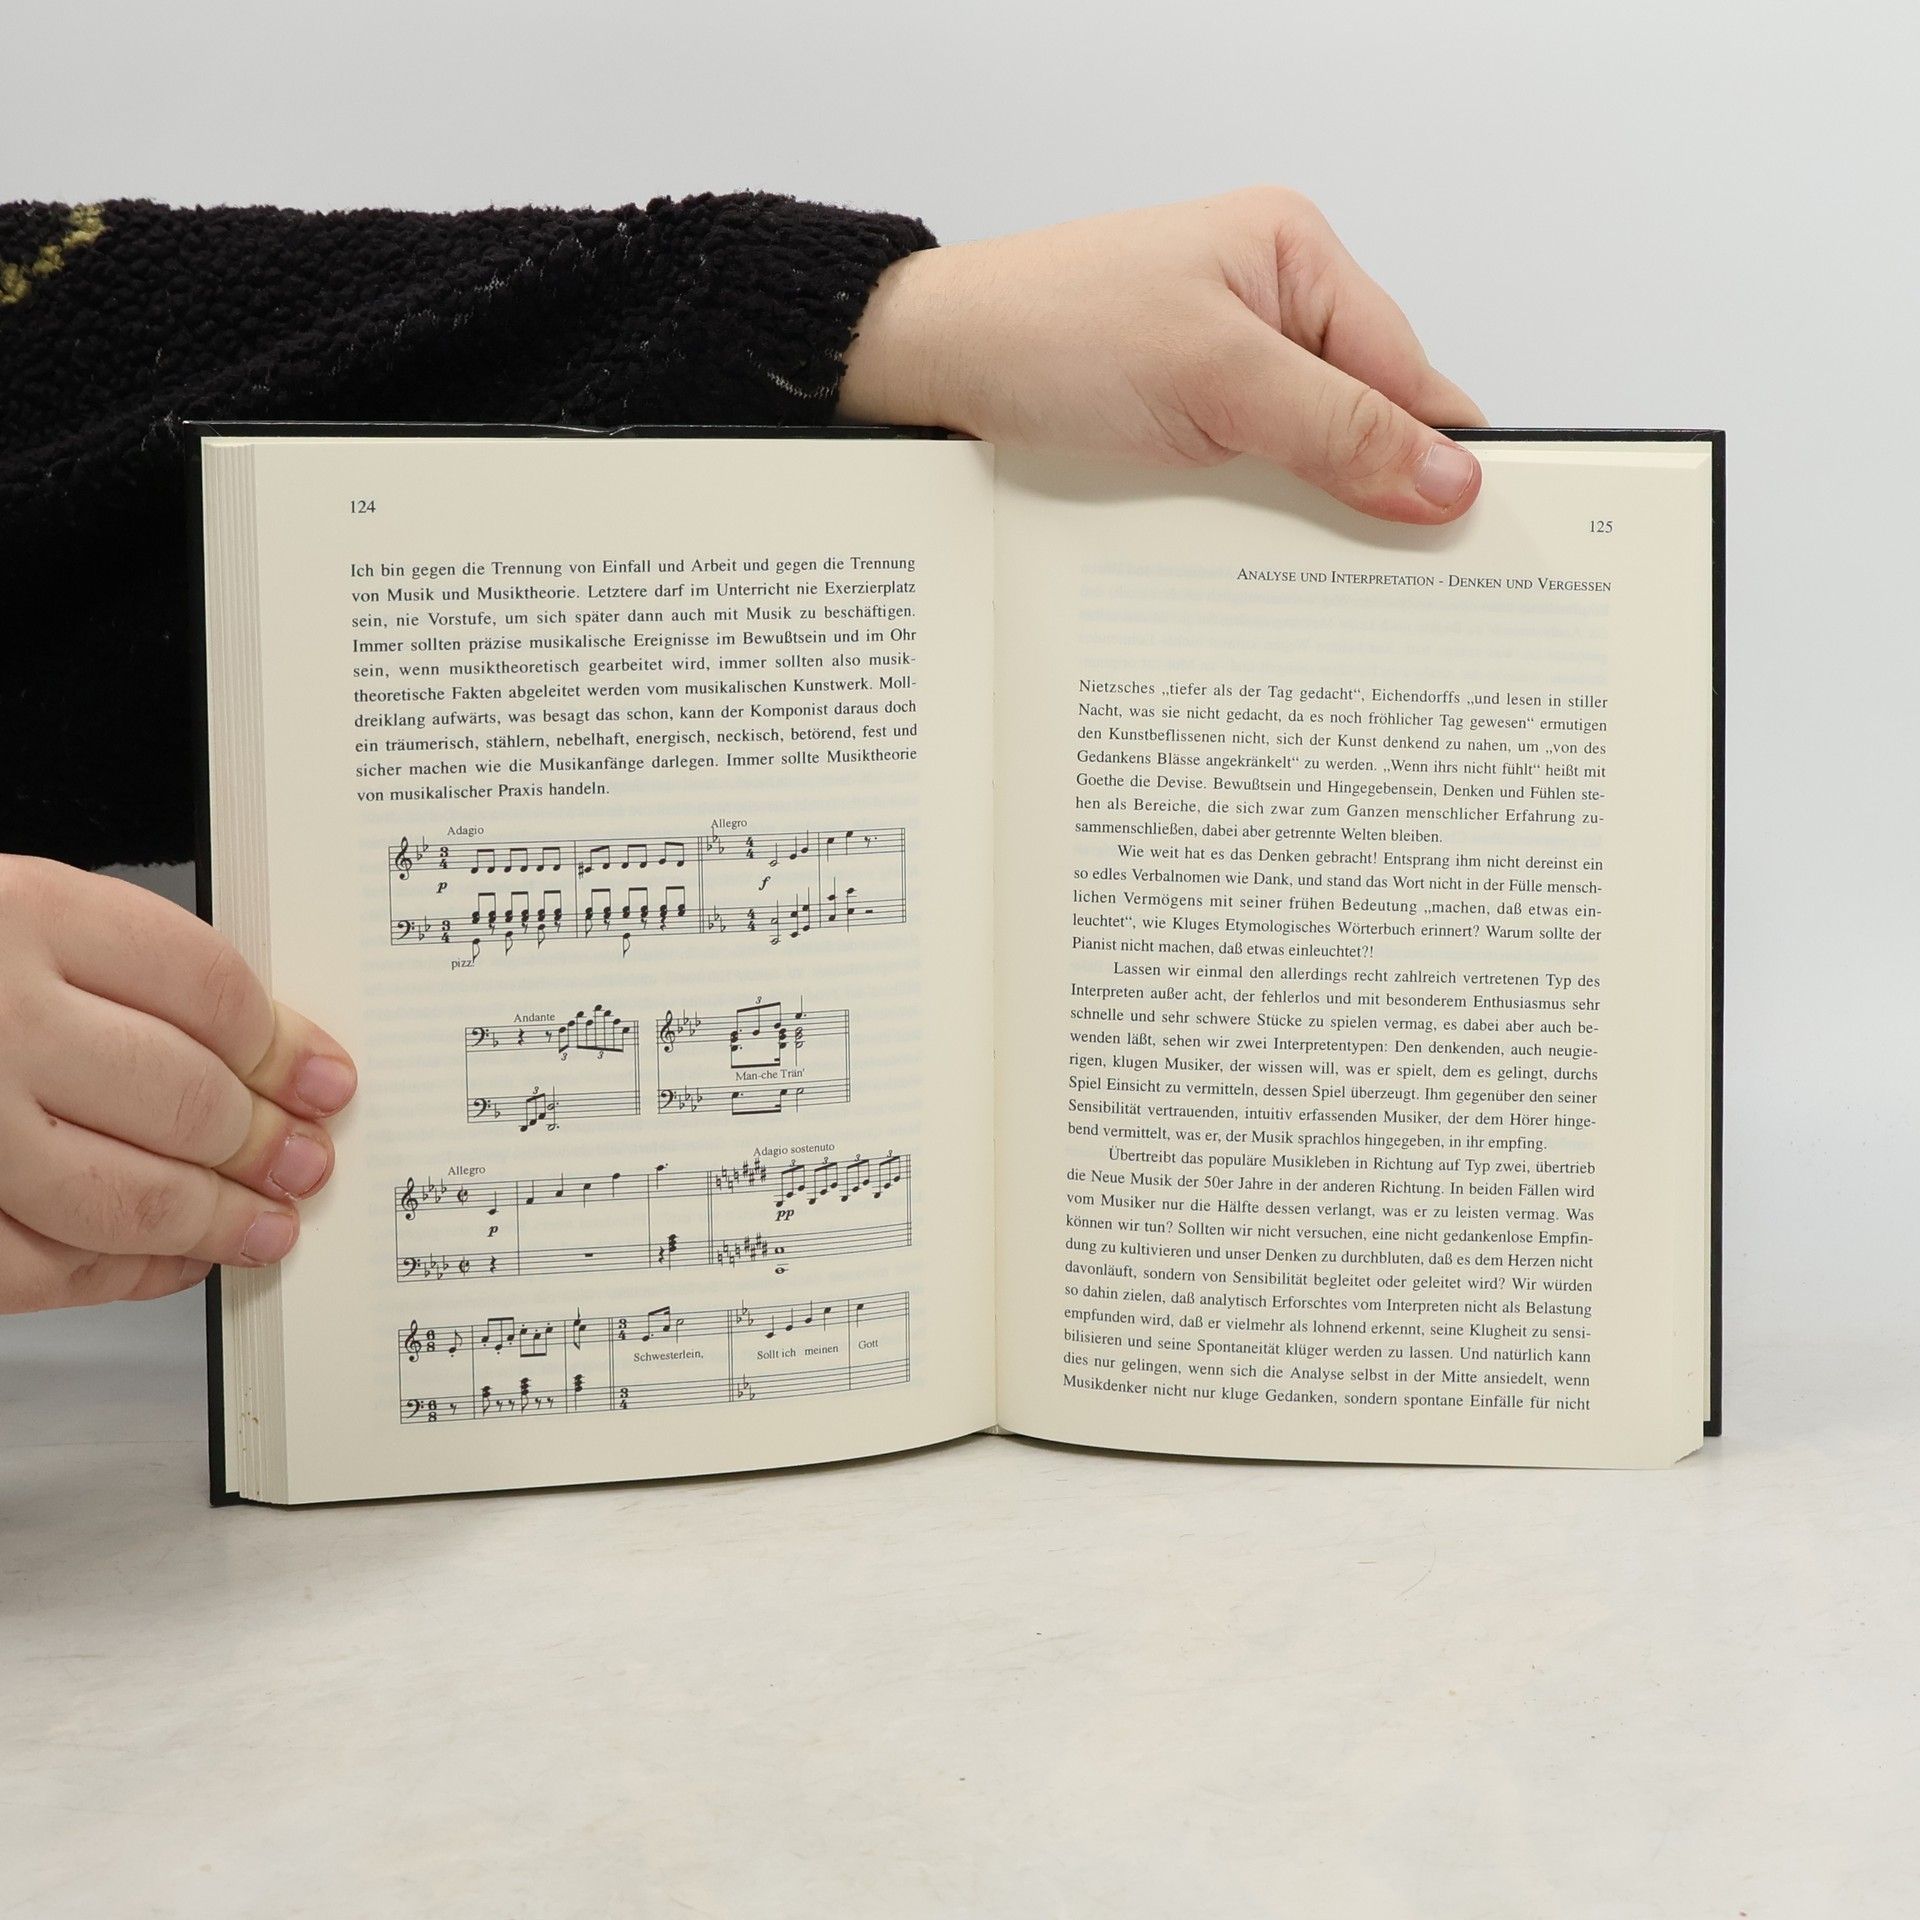 124
Ich bin gegen die Trennung von Einfall und Arbeit und gegen die Trennung
von Musik und Musiktheorie. Letztere darf im Unterricht nie Exerzierplatz
sein, nie Vorstufe, um sich später dann auch mit Musik zu beschäftigen.
Immer sollten präzise musikalische Ereignisse im Bewußtsein und im Ohr
sein, wenn musiktheoretisch gearbeitet wird, immer sollten also musik-
theoretische Fakten abgeleitet werden vom musikalischen Kunstwerk. Moll-
dreiklang aufwärts, was besagt das schon, kann der Komponist daraus doch
ein träumerisch, stählern, nebelhaft, energisch, neckisch, betörend, fest und
sicher machen wie die Musikanfänge darlegen. Immer sollte Musiktheorie
von musikalischer Praxis handeln.
Adagio Allegro
3 4 4 4
p f
3 4 4 4
pizz.
Andante 3
3 3
Man-che Trän'
3
Allegro Adagio sostenuto
3 3 3 3
p pp
6 8 3 4
Schwesterlein, Sollt ich meinen Gott
6 8 3 4
125
ANALYSE UND INTERPRETATION - DENKEN UND VERGESSEN
Nietzsches „tiefer als der Tag gedacht“, Eichendorffs „und lesen in stiller
Nacht, was sie nicht gedacht, da es noch fröhlicher Tag gewesen“ ermutigen
den Kunstbeflissenen nicht, sich der Kunst denkend zu nahen, um „von des
Gedankens Blässe angekränkelt“ zu werden. „Wenn ihrs nicht fühlt“ heißt mit
Goethe die Devise. Bewußtsein und Hingegebensein, Denken und Fühlen ste-
hen als Bereiche, die sich zwar zum Ganzen menschlicher Erfahrung zu-
sammenschließen, dabei aber getrennte Welten bleiben.
Wie weit hat es das Denken gebracht! Entsprang ihm nicht dereinst ein
so edles Verbalnomen wie Dank, und stand das Wort nicht in der Fülle mensch-
lichen Vermögens mit seiner frühen Bedeutung „machen, daß etwas ein-
leuchtet“, wie Kluges Etymologisches Wörterbuch erinnert? Warum sollte der
Pianist nicht machen, daß etwas einleuchtet?!
Lassen wir einmal den allerdings recht zahlreich vertretenen Typ des
Interpreten außer acht, der fehlerlos und mit besonderem Enthusiasmus sehr
schnelle und sehr schwere Stücke zu spielen vermag, es dabei aber auch be-
wenden läßt, sehen wir zwei Interpretentypen: Den denkenden, auch neugie-
rigen, klugen Musiker, der wissen will, was er spielt, dem es gelingt, durchs
Spiel Einsicht zu vermitteln, dessen Spiel überzeugt. Ihm gegenüber den seiner
Sensibilität vertrauenden, intuitiv erfassenden Musiker, der dem Hörer hinge-
bend vermittelt, was er, der Musik sprachlos hingegeben, in ihr empfing.
Übertreibt das populäre Musikleben in Richtung auf Typ zwei, übertrieb
die Neue Musik der 50er Jahre in der anderen Richtung. In beiden Fällen wird
vom Musiker nur die Hälfte dessen verlangt, was er zu leisten vermag. Was
können wir tun? Sollten wir nicht versuchen, eine nicht gedankenlose Empfin-
dung zu kultivieren und unser Denken zu durchbluten, daß es dem Herzen nicht
davonläuft, sondern von Sensibilität begleitet oder geleitet wird? Wir würden
so dahin zielen, daß analytisch Erforschtes vom Interpreten nicht als Belastung
empfunden wird, daß er vielmehr als lohnend erkennt, seine Klugheit zu sensi-
bilisieren und seine Spontaneität klüger werden zu lassen. Und natürlich kann
dies nur gelingen, wenn sich die Analyse selbst in der Mitte ansiedelt, wenn
Musikdenker nicht nur kluge Gedanken, sondern spontane Einfälle für nicht